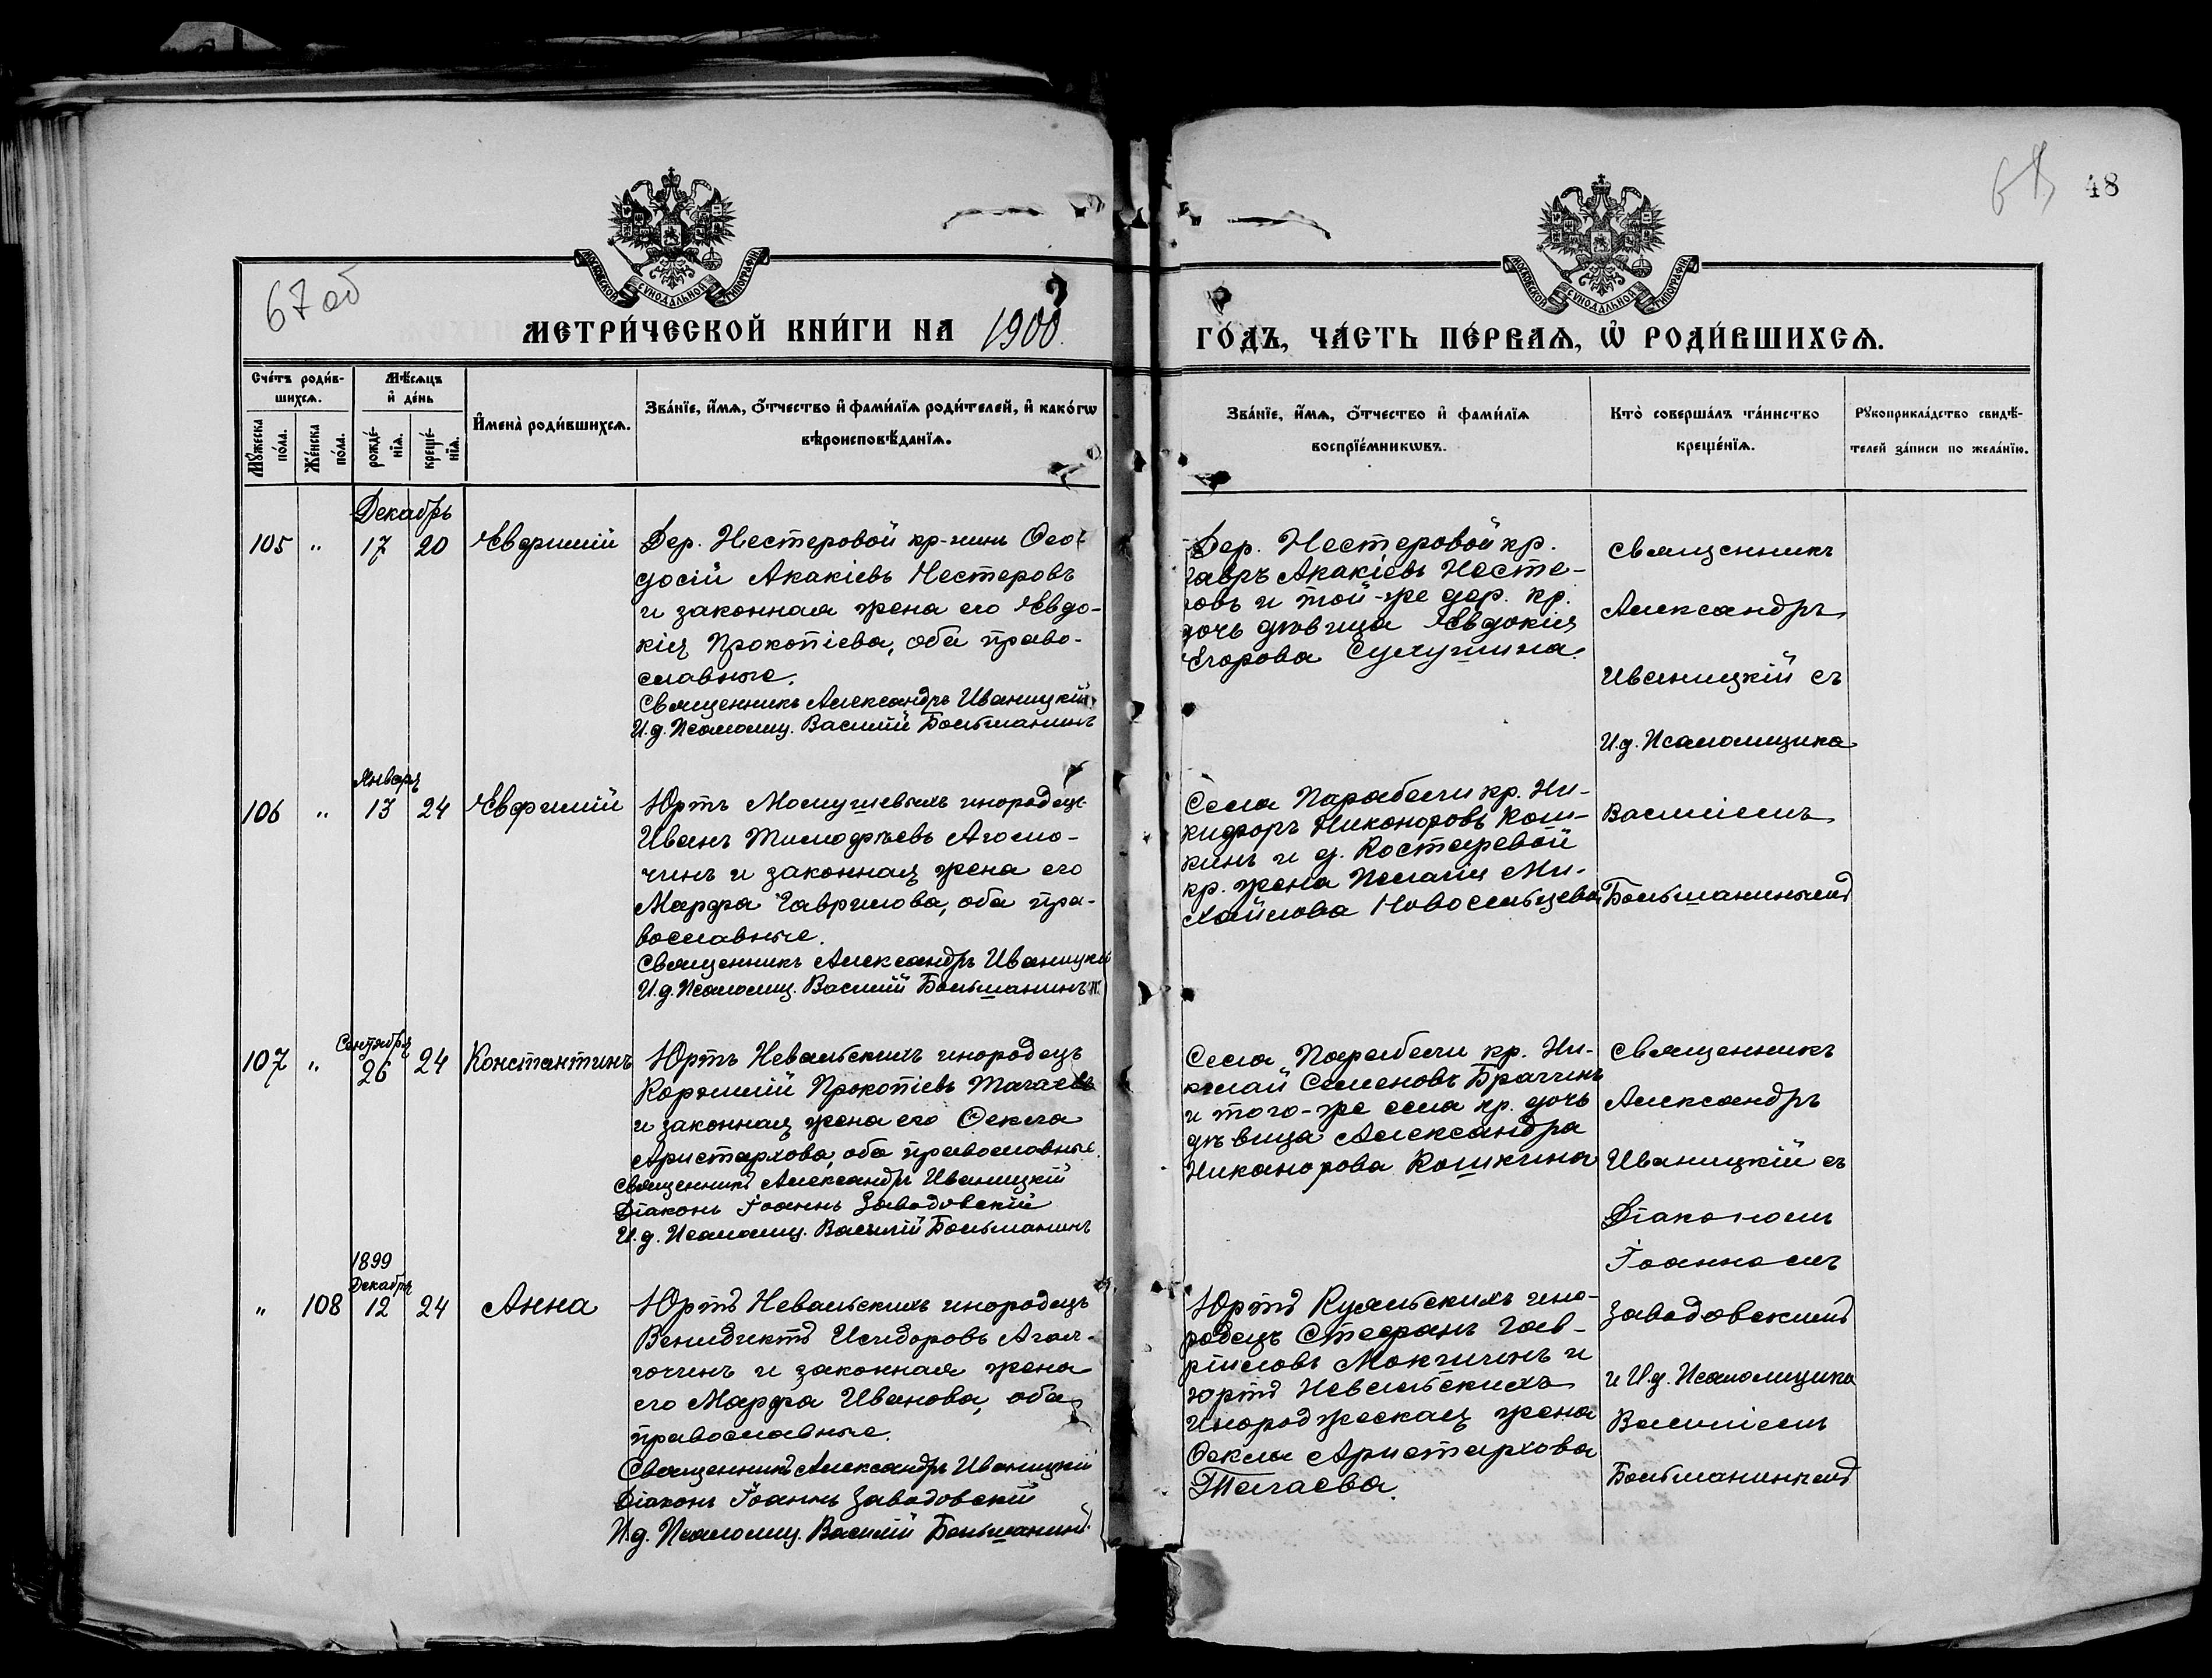 67 об
48
МОСКОВСКОЙ СѴНОДАЛЬНОЙ ТИПОГРАФІИ
МОСКОВСКОЙ СѴНОДАЛЬНОЙ ТИПОГРАФІИ
МЕТРИ́ЧЕСКОЙ КНИ́ГИ НА 1900
ГО́ДЪ, ЧА́СТЬ ПЕ́РВАѦ, Ѡ҆ РОДИ́ВШИХСѦ.
Сче́тъ роди́в-
шихсѧ.
Мꙋ́жеска по́ла.
Же́нска по́ла.
Мѣ́сѧцъ
и҆ де́нь
рожде́-нїѧ.
креще́-нїѧ.
И҆мена̀ роди́вшихсѧ.
Зва́нїе, и҆́мѧ, ѻ҆́тчество и҆ фами́лїѧ роди́телей, и҆ како́гѡ
вѣроисповѣ́данїѧ.
Зва́нїе, и҆́мѧ, ѻ҆́тчество и҆ фами́лїѧ
воспрїе́мникѡвъ.
Кто̀ соверша́лъ та́инство
креще́нїѧ.
Рꙋкоприкла́дство свидѣ́-
телей за́писи по жела́нїю.
Декабрь
105 " 17 20 Евфимій
Дер. Нестеровой кр-нинъ Ѳео-
досій Акакіевъ Нестеровъ
и законная жена его Евдо-
кія Прокопіева, оба право-
славные.
Священникъ Александръ Иваницкій
И.д. Псаломщ. Василій Большанинъ
Дер. Нестеровой кр.
Лавръ Акакіевъ Несте-
ровъ и той-же дер. кр.
дочь дѣвица Евдокія
Егорова
Священникъ
Александръ
Иваницкій съ
И.д. Псаломщика
Василіемъ
Большанинымъ
Январь
106 " 13 24 Евфимій
Юртъ инородецъ
Иванъ Тимофѣевъ
и законная жена его
Марфа Гаврилова, оба пра-
вославные.
Священникъ Александръ Иваницкій
И.д. Псаломщ. Василій Большанинъ
Села Парабели кр. Ни-
кифоръ Никоноровъ Кош-
кинъ и д. Костаревой
кр. жена Пелагія Ми-
хайлова Новосельцева
Сентябрь
107 " 26 24 Константинъ
Юртъ Невальскихъ инородецъ
Корнилій Прокопіевъ Тагаевъ
и законная жена его Ѳекла
Аристархова, оба православные.
Священникъ Александръ Иваницкій
Діаконъ Іоаннъ Заводовскій
И.д. Псаломщ. Василій Большанинъ
Села Парабели кр. Ни-
колай Семеновъ
и того-же села кр. дочь
дѣвица Александра
Никанорова Кошкина
Священникъ
Александръ
Иваницкій съ
Діакономъ
Іоанномъ
Заводовскимъ
и И.д. Псаломщика
Василіемъ
Большанинымъ
1899
Декабрь
" 108 12 24 Анна
Юртъ Невальскихъ инородецъ
Бенидиктъ Исидоровъ
и законная жена
его Марфа Иванова, оба
православные.
Священникъ Александръ Иваницкій
Діаконъ Іоаннъ Заводовскій
И.д. Псаломщ. Василій Большанинъ.
Юртъ ино-
родецъ Стефанъ Гав-
риловъ и
юртъ Невальскихъ
жена
Ѳекла Аристархова
Тагаева.